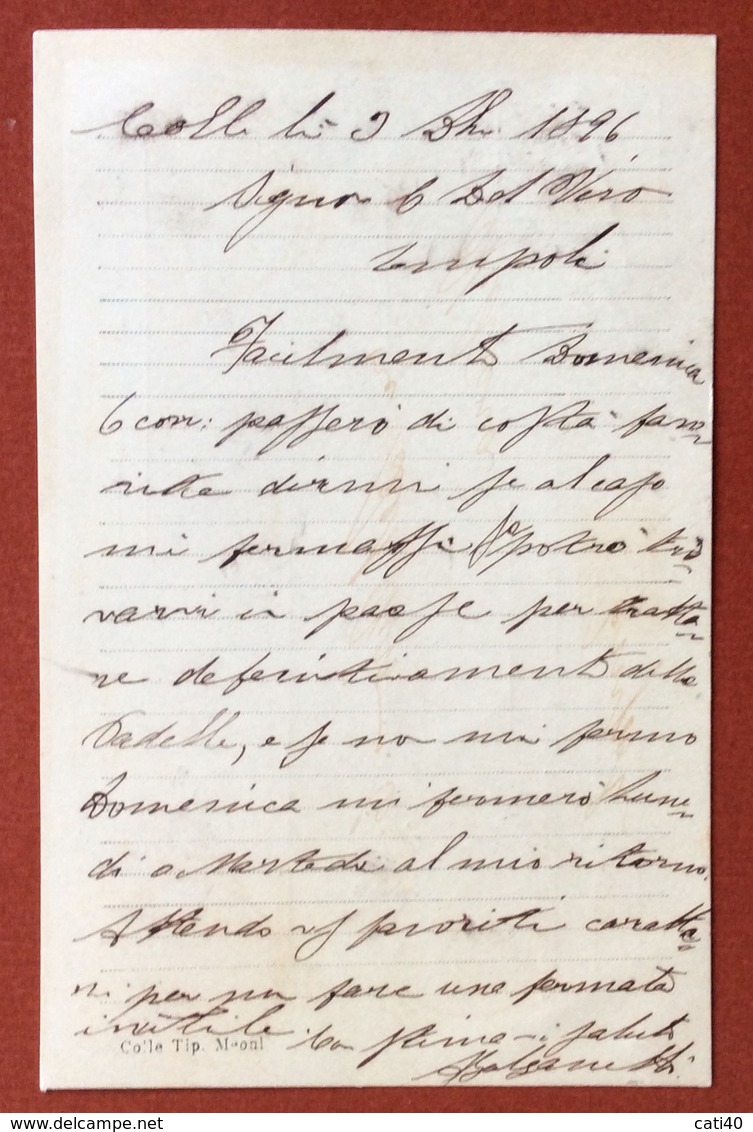 Colle li 3 Dbre 1896
Signor C Del Vivo
Empoli
Facilmente Domenica
6 corr: passerò di costà favo=
rite dirmi se al caso
mi fermassi se potrò tro=
varvi in paese per tratta=
re definitivamente delle
Padelle, e se no mi fermo
Domenica mi fermerò Lune=
di o Martedi al mio ritorno.
Attendo vs pronti caratte=
ri per non fare una fermata
inutile Con stima vi saluto
Colle Tip. Meoni